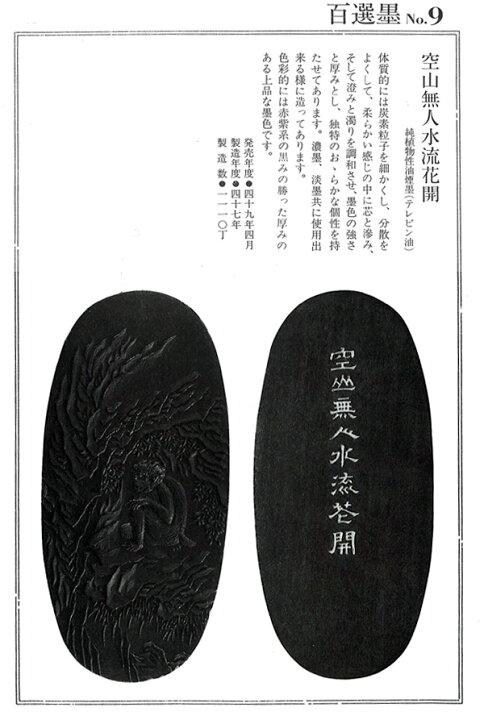 百選墨 No.9
空山無人水流花開
純植物性油煙墨(テレピン油)
体質的には炭素粒子を細かくし、分散を
よくして、柔らかい感じの中に芯と滲み、
そして澄みと濁りを調和させ、墨色の強さ
と厚みとし、独特のおゝらかな個性を持
たせてあります。濃墨、淡墨共に使用出
来る様に造ってあります。
色彩的には赤紫系の黒みの勝った厚みの
ある上品な墨色です。
発売年度●四十九年四月
製造年度●四十七年
製造数●一一一〇丁
空山無人水流花開